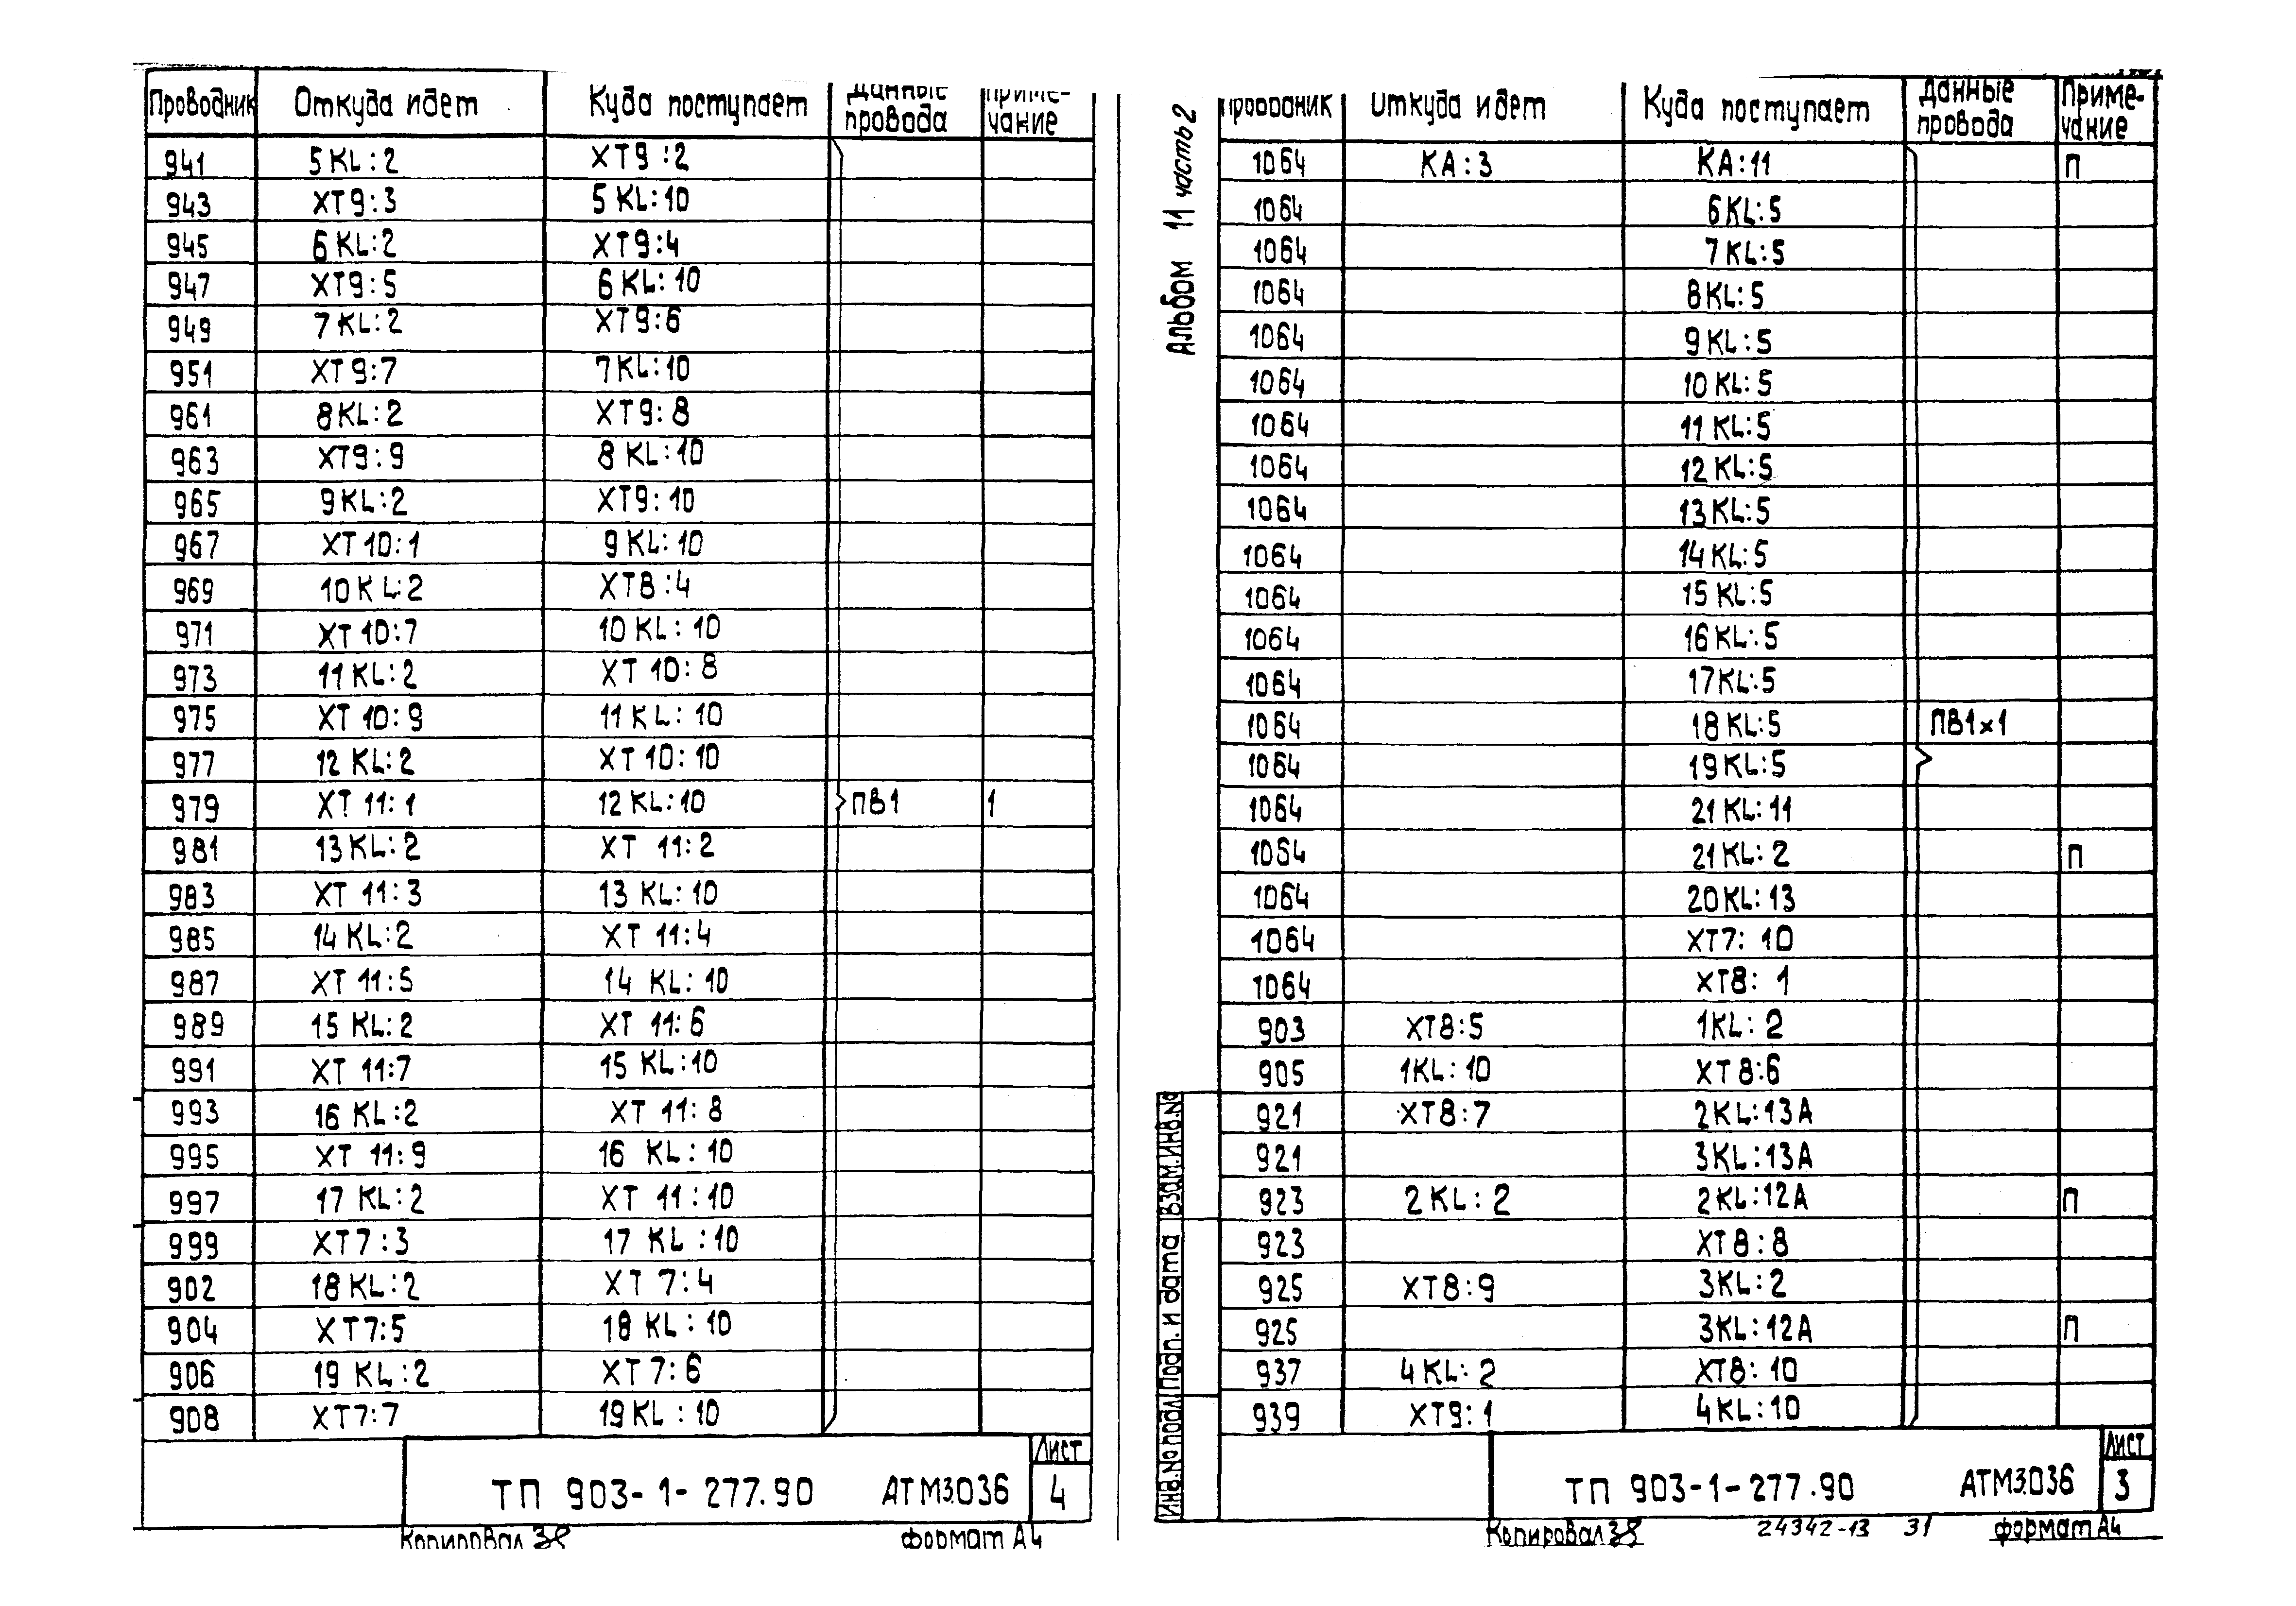 Проводник Откуда идет Куда поступает Данные провода Приме-чание
941 5KL:2 XT9:2
943 XT9:3 5KL:10
945 6KL:2 XT9:4
947 XT9:5 6KL:10
949 7KL:2 XT9:6
951 XT9:7 7KL:10
961 8KL:2 XT9:8
963 XT9:9 8KL:10
965 9KL:2 XT9:10
967 XT10:1 9KL:10
969 10KL:2 XT8:4
971 XT10:7 10KL:10
973 11KL:2 XT10:8
975 XT10:9 11KL:10
977 12KL:2 XT10:10
979 XT11:1 12KL:10 ПВ1 1
981 13KL:2 XT11:2
983 XT11:3 13KL:10
985 14KL:2 XT11:4
987 XT11:5 14KL:10
989 15KL:2 XT11:6
991 XT11:7 15KL:10
993 16KL:2 XT11:8
995 XT11:9 16KL:10
997 17KL:2 XT11:10
999 XT7:3 17KL:10
902 18KL:2 XT7:4
904 XT7:5 18KL:10
906 19KL:2 XT7:6
908 XT7:7 19KL:10
ТП 903-1-277.90 АТМ3.036 Лист 4
Копировал формат А4
Альбом 11 часть 2
Проводник Откуда идет Куда поступает Данные провода Приме-чание
1064 KA:3 KA:11 П
1064 6KL:5
1064 7KL:5
1064 8KL:5
1064 9KL:5
1064 10KL:5
1064 11KL:5
1064 12KL:5
1064 13KL:5
1064 14KL:5
1064 15KL:5
1064 16KL:5
1064 17KL:5
1064 18KL:5 ПВ1х1
1064 19KL:5
1064 21KL:11
1064 21KL:2 П
1064 20KL:13
1064 XT7:10
1064 XT8:1
903 XT8:5 1KL:2
905 1KL:10 XT8:6
921 XT8:7 2KL:13A
921 3KL:13A
923 2KL:2 2KL:12A П
923 XT8:8
925 XT8:9 3KL:2
925 3KL:12A П
937 4KL:2 XT8:10
939 XT9:1 4KL:10
Инв.№ подл. Подп. и дата Взам.Инв.№
ТП 903-1-277.90 АТМ3.036 Лист 3
Копировал 24342-13 31 формат А4